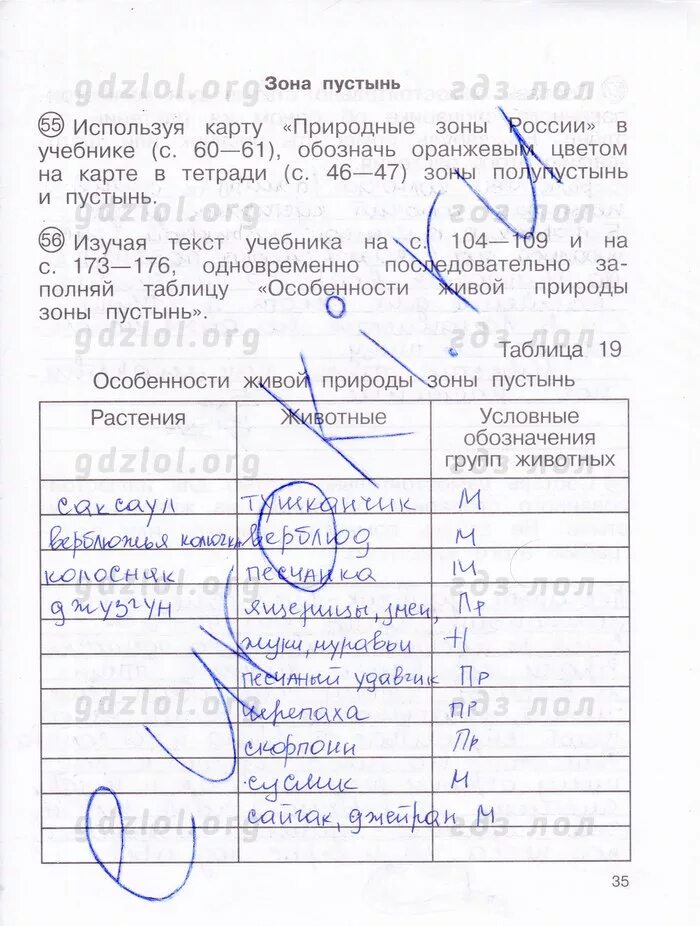 gdzlol.org гдз лол
Зона пустынь
55 Используя карту «Природные зоны России» в
учебнике (с. 60—61), обозначь оранжевым цветом
на карте в тетради (с. 46—47) зоны полупустынь
и пустынь.
gdzlol.org гдз лол
56 Изучая текст учебника на с. 104—109 и на
с. 173—176, одновременно последовательно за-
полняй таблицу «Особенности живой природы
зоны пустынь».
gdzlol.org гдз лол
Таблица 19
Особенности живой природы зоны пустынь
Растения Животные Условные
обозначения
групп животных
gdzlol.org гдз лол
саксаул тушканчик М
верблюжья колючка верблюд М
колосняк песчанка М
gdzlol.org гдз лол
джузгун ящерицы, змеи, Пр
жуки, муравьи Н
песчаный удавчик Пр
gdzlol.org гдз лол
черепаха Пр
скорпион Пр
суслик М
сайгак, джейран М
gdzlol.org гдз лол
35